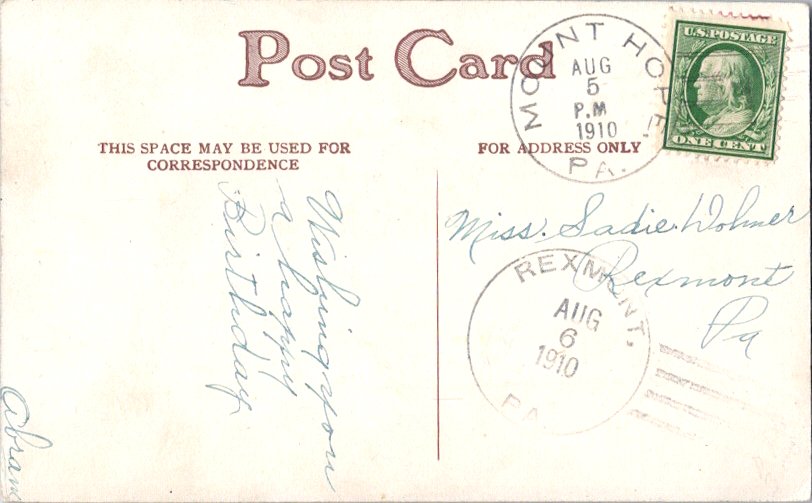 Post Card
THIS SPACE MAY BE USED FOR
CORRESPONDENCE
FOR ADDRESS ONLY
MOUNT HOPE
AUG
5
P.M
1910
PA.
U.S. POSTAGE
ONE CENT
Wishing you
a happy
Birthday
Abram
Miss. Sadie
Rexmont
Pa
REXMONT,
AUG
6
1910
PA